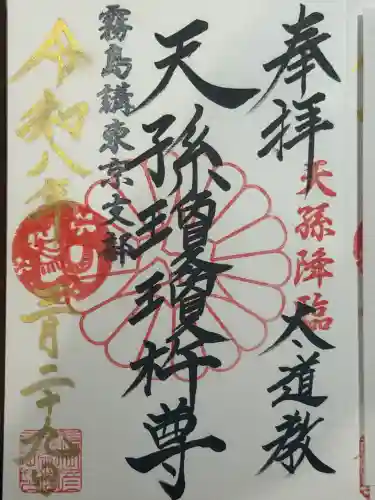 奉拝
天孫降臨
大道教
天孫瓊瓊杵尊
霧島講東京支部
令和八年三月二十九日